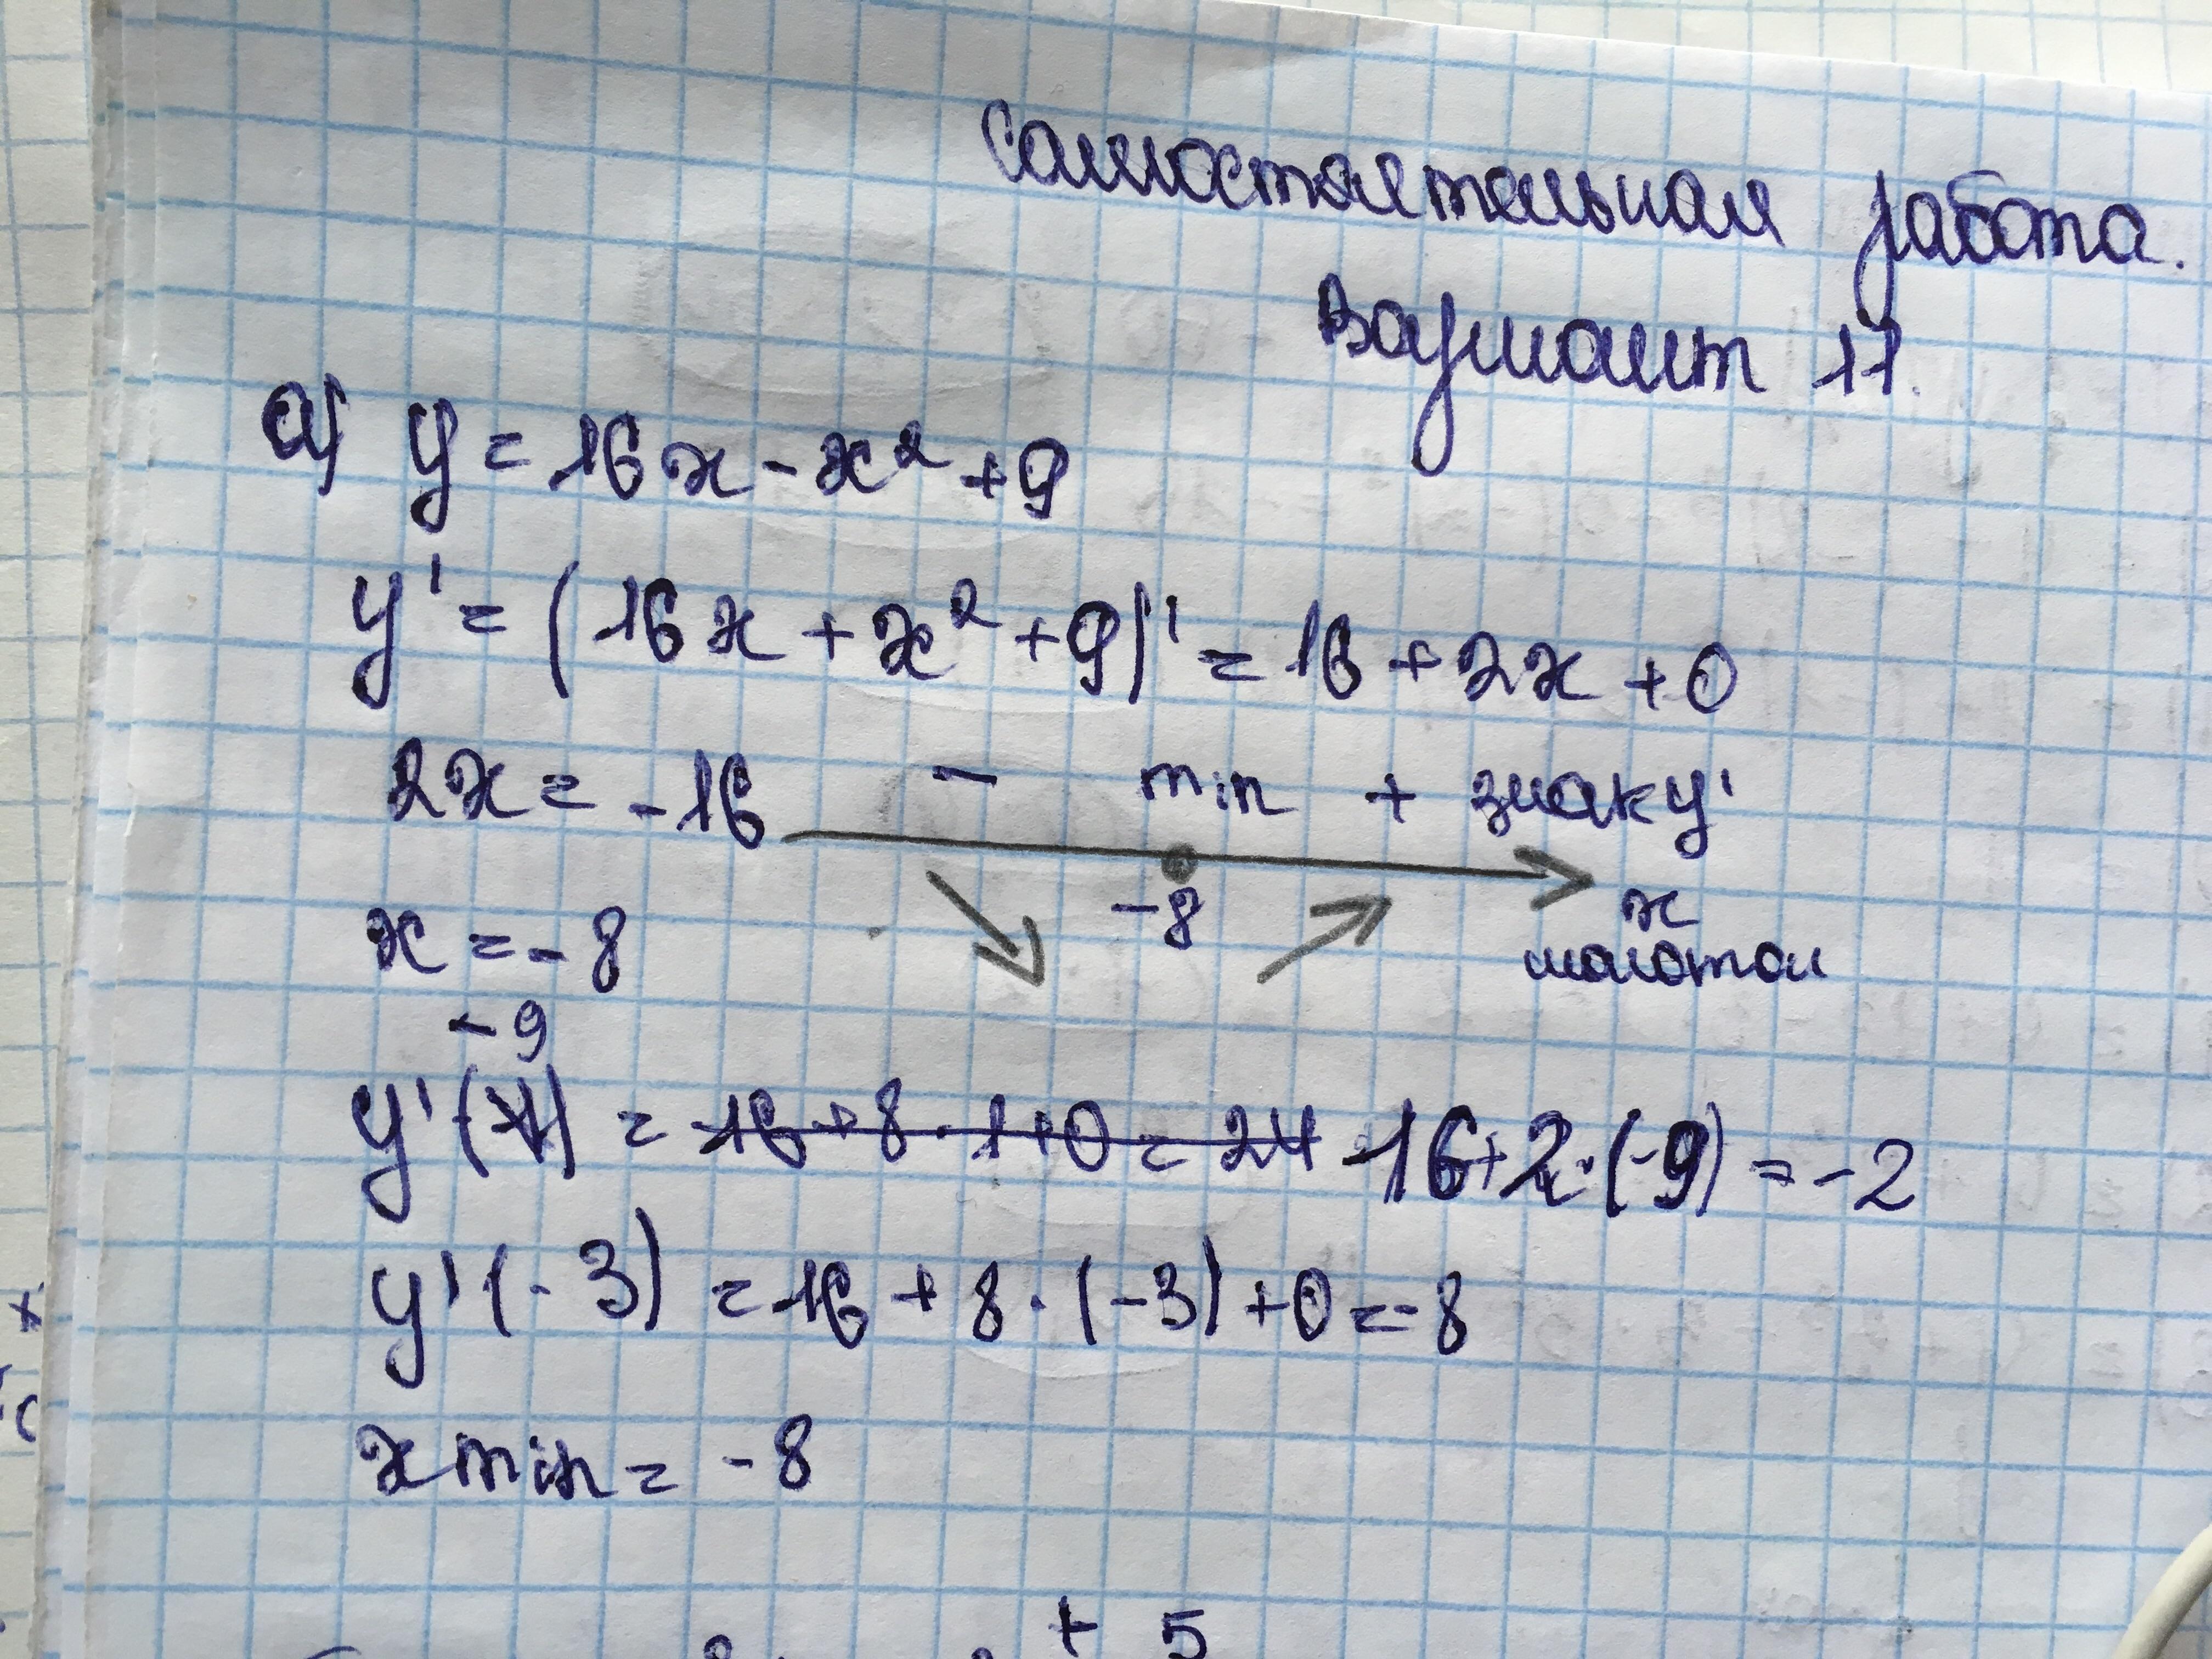 Самостоятельная работа.
Вариант 11.
а) y = 16x - x² + 9
y' = (16x + x² + 9)' = 16 + 2x + 0
2x = -16
- min + знак y'
-8
x
x = -8
-9
y'(-1) = 16 + 8 · 1 + 0 = 24 16 + 2 · (-9) = -2
y'(-3) = 16 + 8 · (-3) + 0 = -8
x min = -8
+ 5